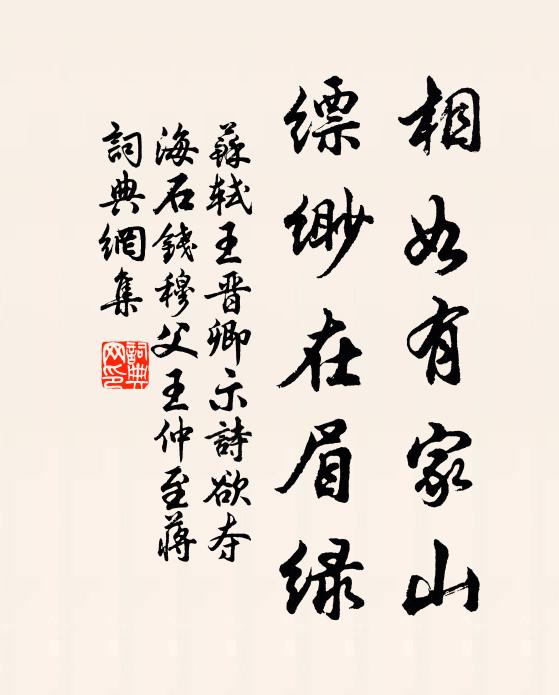 相如有家山
缥缈在眉绿
蘇軾王晋卿示詩欲夺
海石錢穆父王仲至蔣
詞典網集
詞典网印